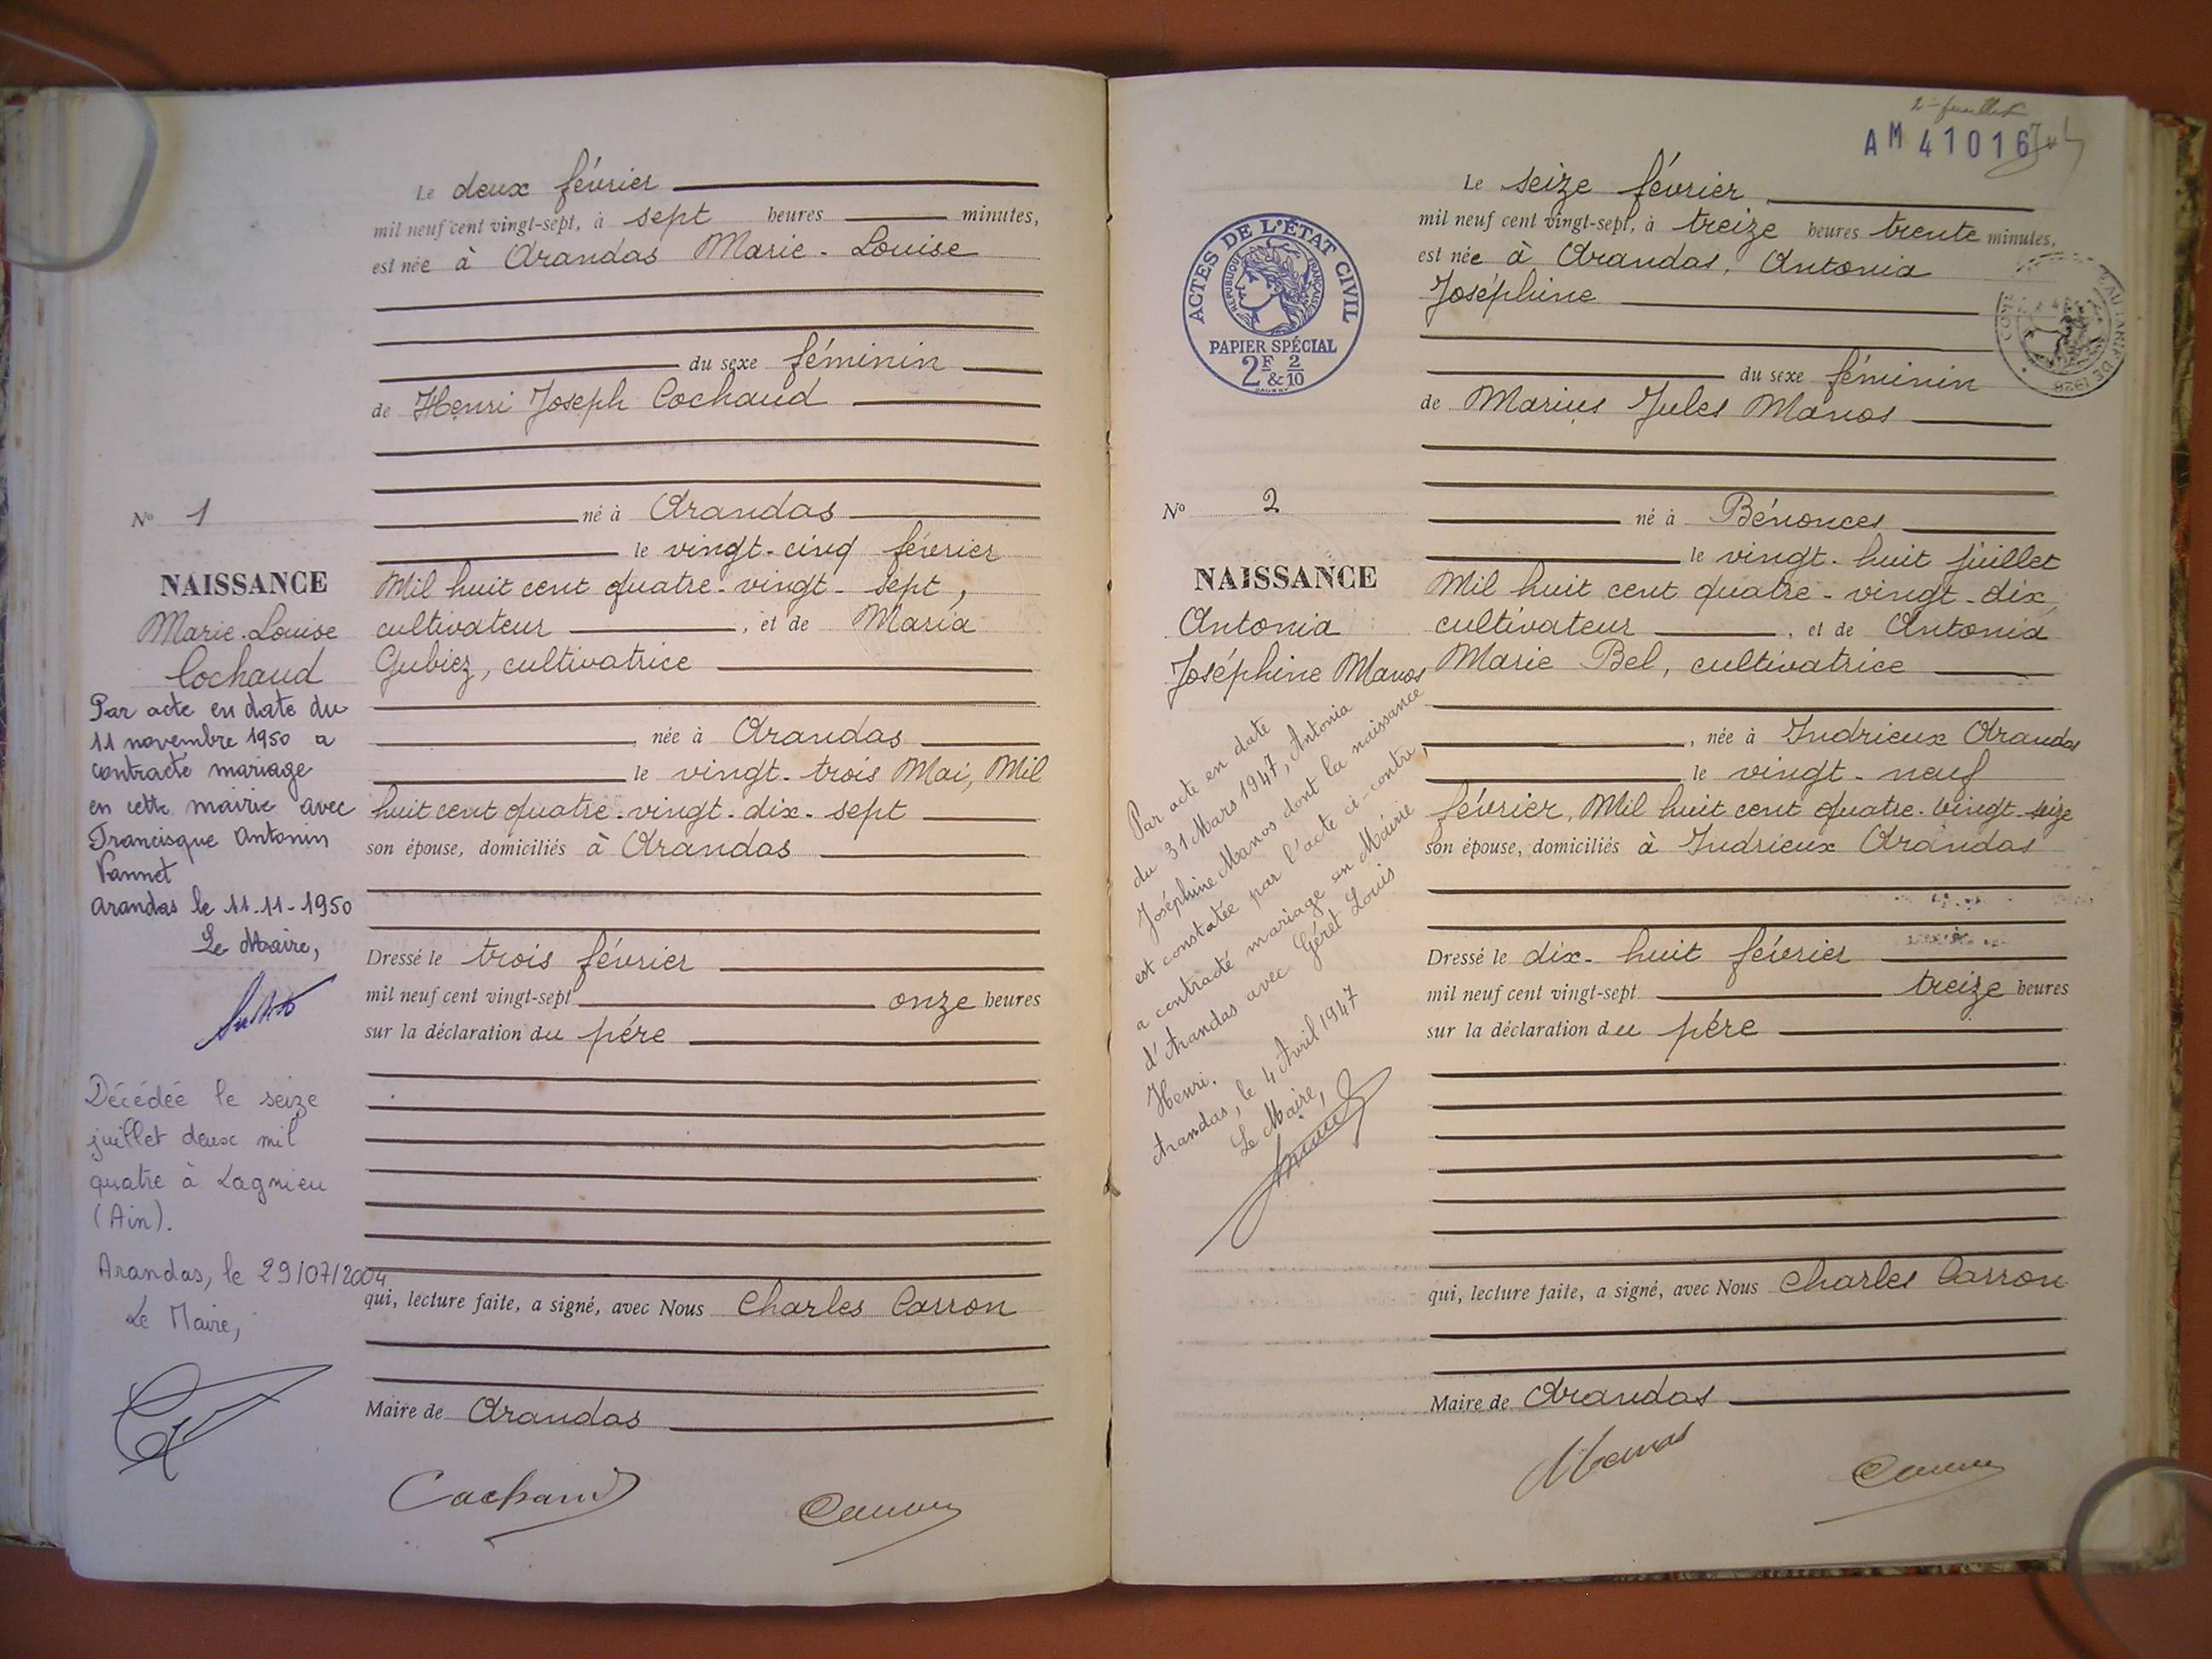 Le deux février
mil neuf cent vingt-sept, à sept heures minutes,
est née à Arandas Marie-Louise
du sexe féminin
de Henri Joseph Cochaud
né à Arandas
le vingt-cinq février
Mil huit cent quatre-vingt-sept,
cultivateur, et de Maria
Gubiez, cultivatrice
, née à Arandas
le vingt-trois Mai, Mil
huit cent quatre-vingt-dix-sept
son épouse, domiciliés à Arandas
Dressé le trois février
mil neuf cent vingt-sept onze heures
sur la déclaration du pére
qui, lecture faite, a signé, avec Nous Charles Carron
Maire de Arandas
Cochaud
Carron
No 1
NAISSANCE
Marie-Louise
Cochaud
Par acte en date du
11 novembre 1950 a
contracté mariage
en cette mairie avec
Francisque Antonin
Vannet
Arandas le 11-11-1950
Le Maire,
Décédée le seize
juillet deux mil
quatre à Lagnieu
(Ain).
Arandas, le 29/07/2004
Le Maire,
2e feuillet
AM 41016
Le seize février
mil neuf cent vingt-sept, à treize heures trente minutes,
est née à Arandas, Antonia
Joséphine
du sexe féminin
de Marius Jules Manos
né à Bénonces
le vingt-huit juillet
Mil huit cent quatre-vingt-dix
cultivateur, et de Antonia
Marie Bel, cultivatrice
, née à Indrieux Arandas
le vingt-neuf
février, Mil huit cent quatre-vingt-seize
son épouse, domiciliés à Indrieux Arandas
Dressé le dix-huit février
mil neuf cent vingt-sept treize heures
sur la déclaration du pére
qui, lecture faite, a signé, avec Nous Charles Carron
Maire de Arandas
Manos
Carron
ACTES DE L'ÉTAT CIVIL
RÉPUBLIQUE FRANÇAISE
PAPIER SPÉCIAL
2F & 2/10
No 2
NAISSANCE
Antonia
Joséphine Manos
Par acte en date
du 31 Mars 1947, Antonia
Joséphine Manos dont la naissance
est constatée par l'acte ci-contre,
a contracté mariage en Mairie
d'Arandas avec Géret Louis
Henri.
Arandas, le 4 Avril 1947
Le Maire,